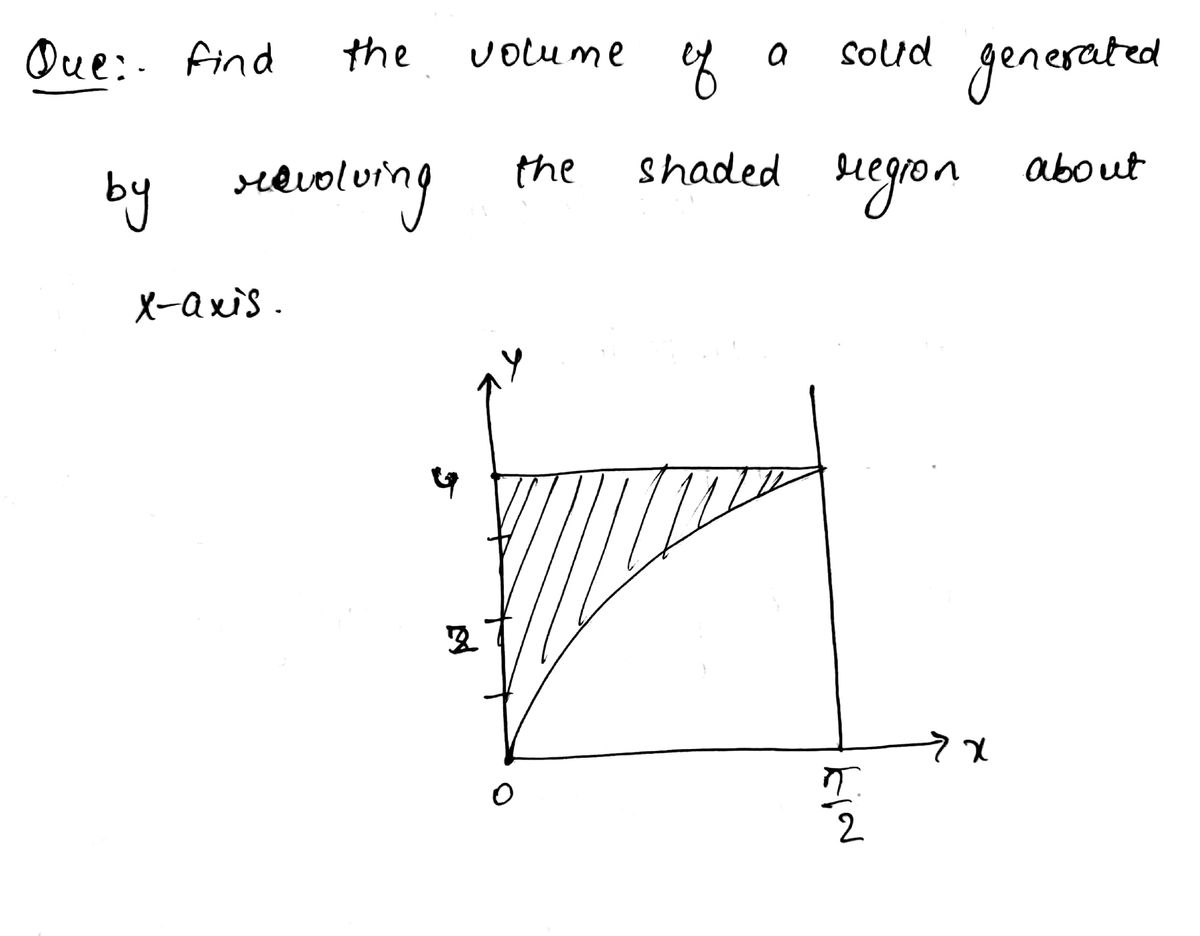 Que:- find the volume of a solid generated
by revolving the shaded region about
x-axis.
y
4
2
0
π/2
x